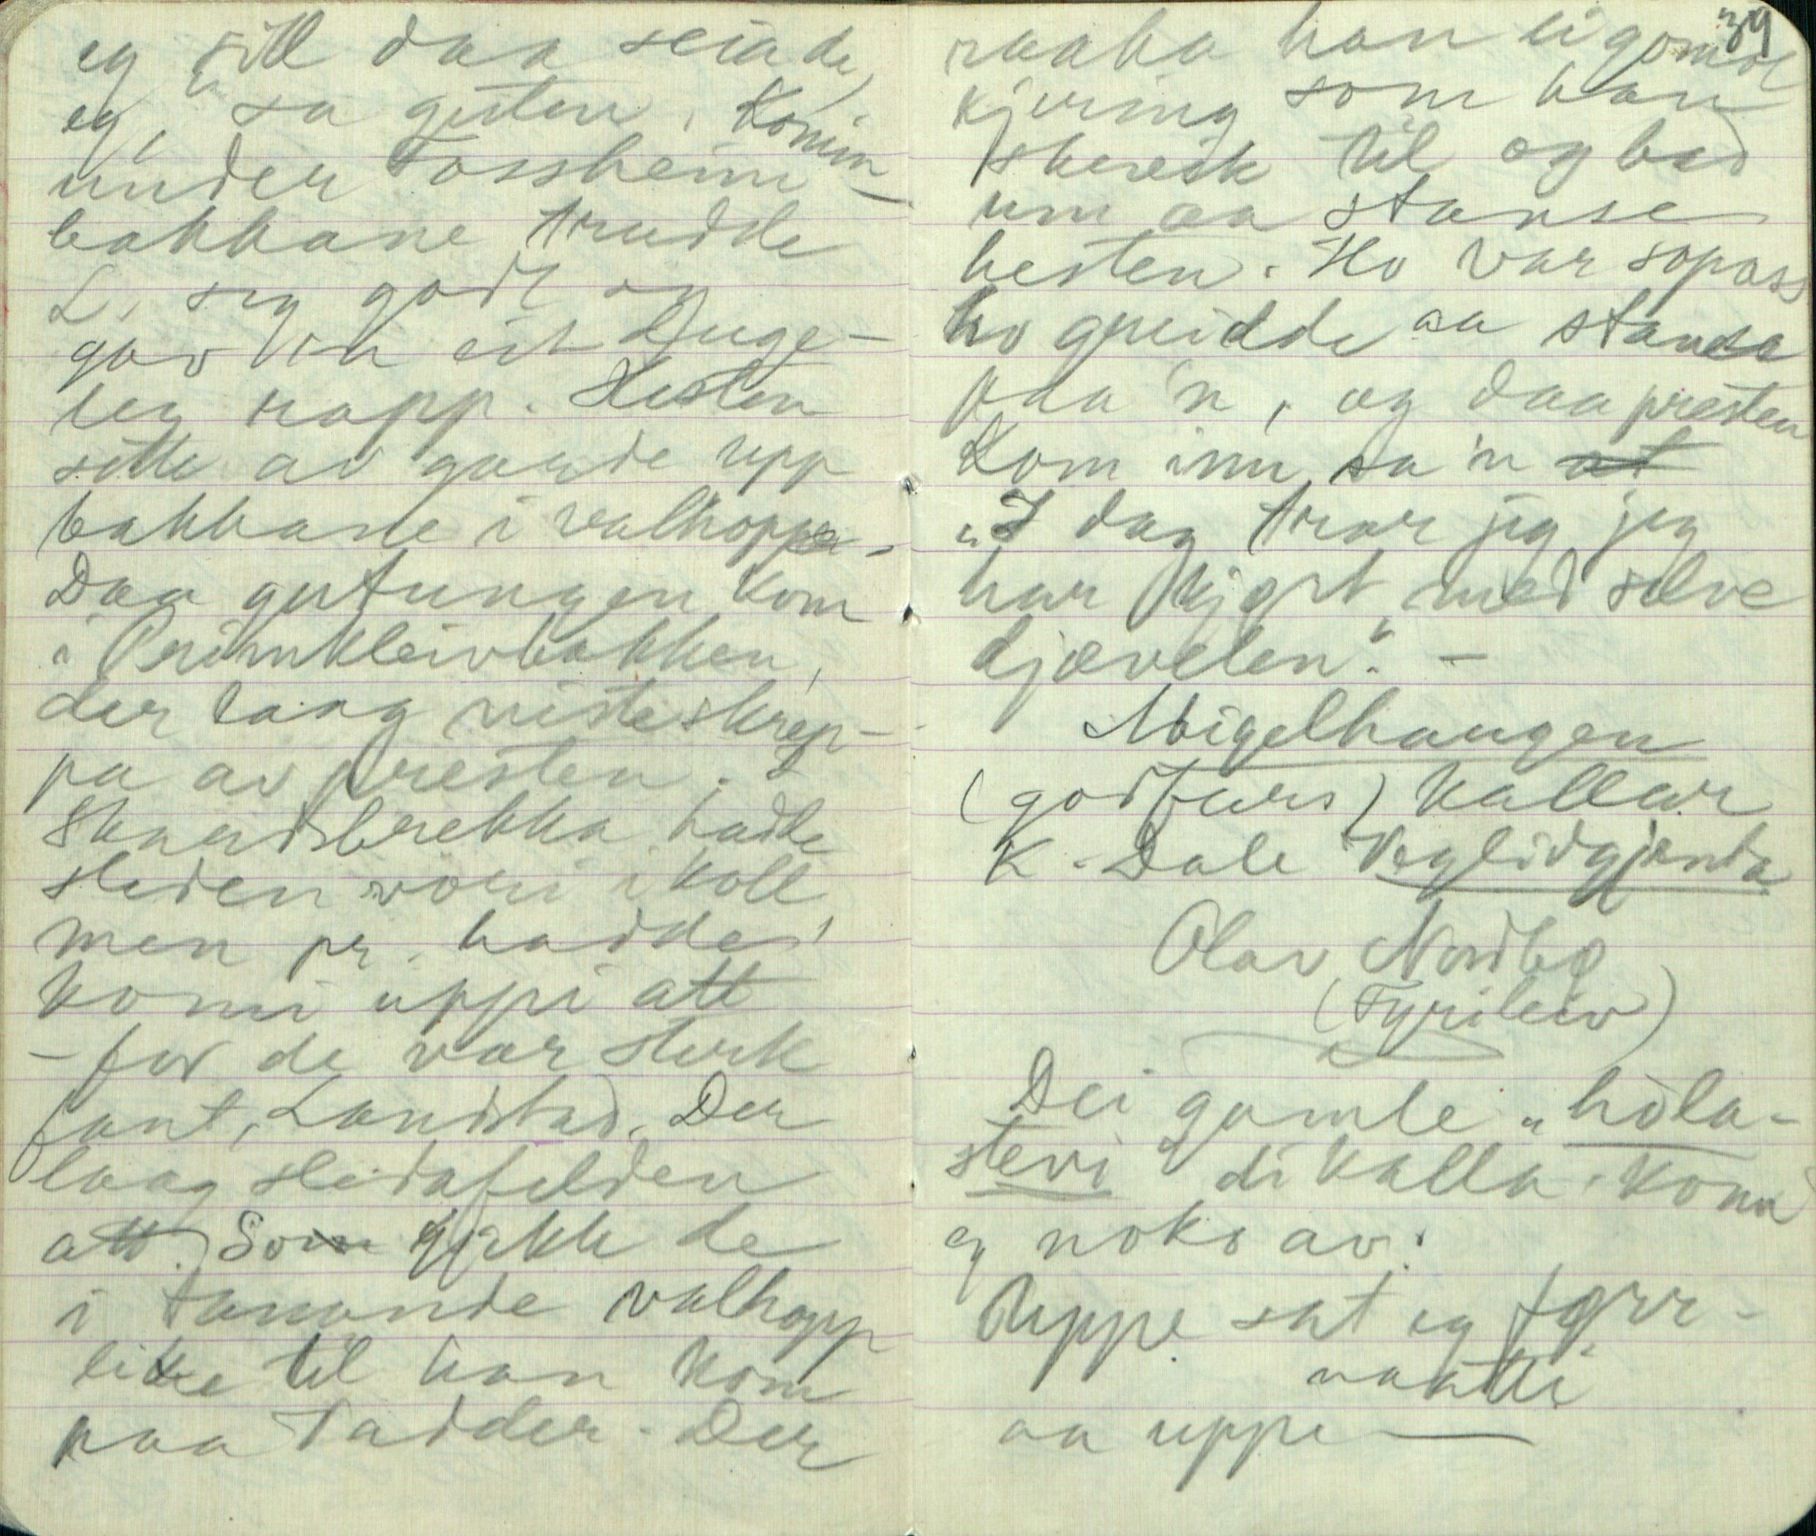 eg vill daa seia de,
eg, sa guten. Komin
under Fossheim-
bakkane trudde
L. seg godt og
gav 'n eit duge-
leg rapp. Hesten
sette av garde upp
bakkane i valhopp
Daa gutungen kom
i Perimkleivbakken,
der laag nisteskrep-
pa av presten. I
Skaardsbrekka hadde
sleden vori i koll
men pr. hadde
komi uppi att
- for de var sterk
fant, Landstad. Der
laag sledafelden
att. So gjekk de
i tanande valhopp
like til han kom
paa Tadder. Der
39
raaka han ei gomol
kjering som han
skreik til og bad
um aa stanse
hesten. Ho var sopass
ho greidde aa stanse
paa 'n, og daa presten
kom inn sa 'n at
"I dag trar jeg jeg
har kjørt med selve
djævelen". -
Migelhaugen
(godfars) kallar
K. Dale Veglidgjenta
Olav Nordbø
(Tyrileiv)
Dei gamle "hola-
stevi" di kalla. konn
eg noko av:
Uppe sat eg fyrr-
naatti
aa uppe